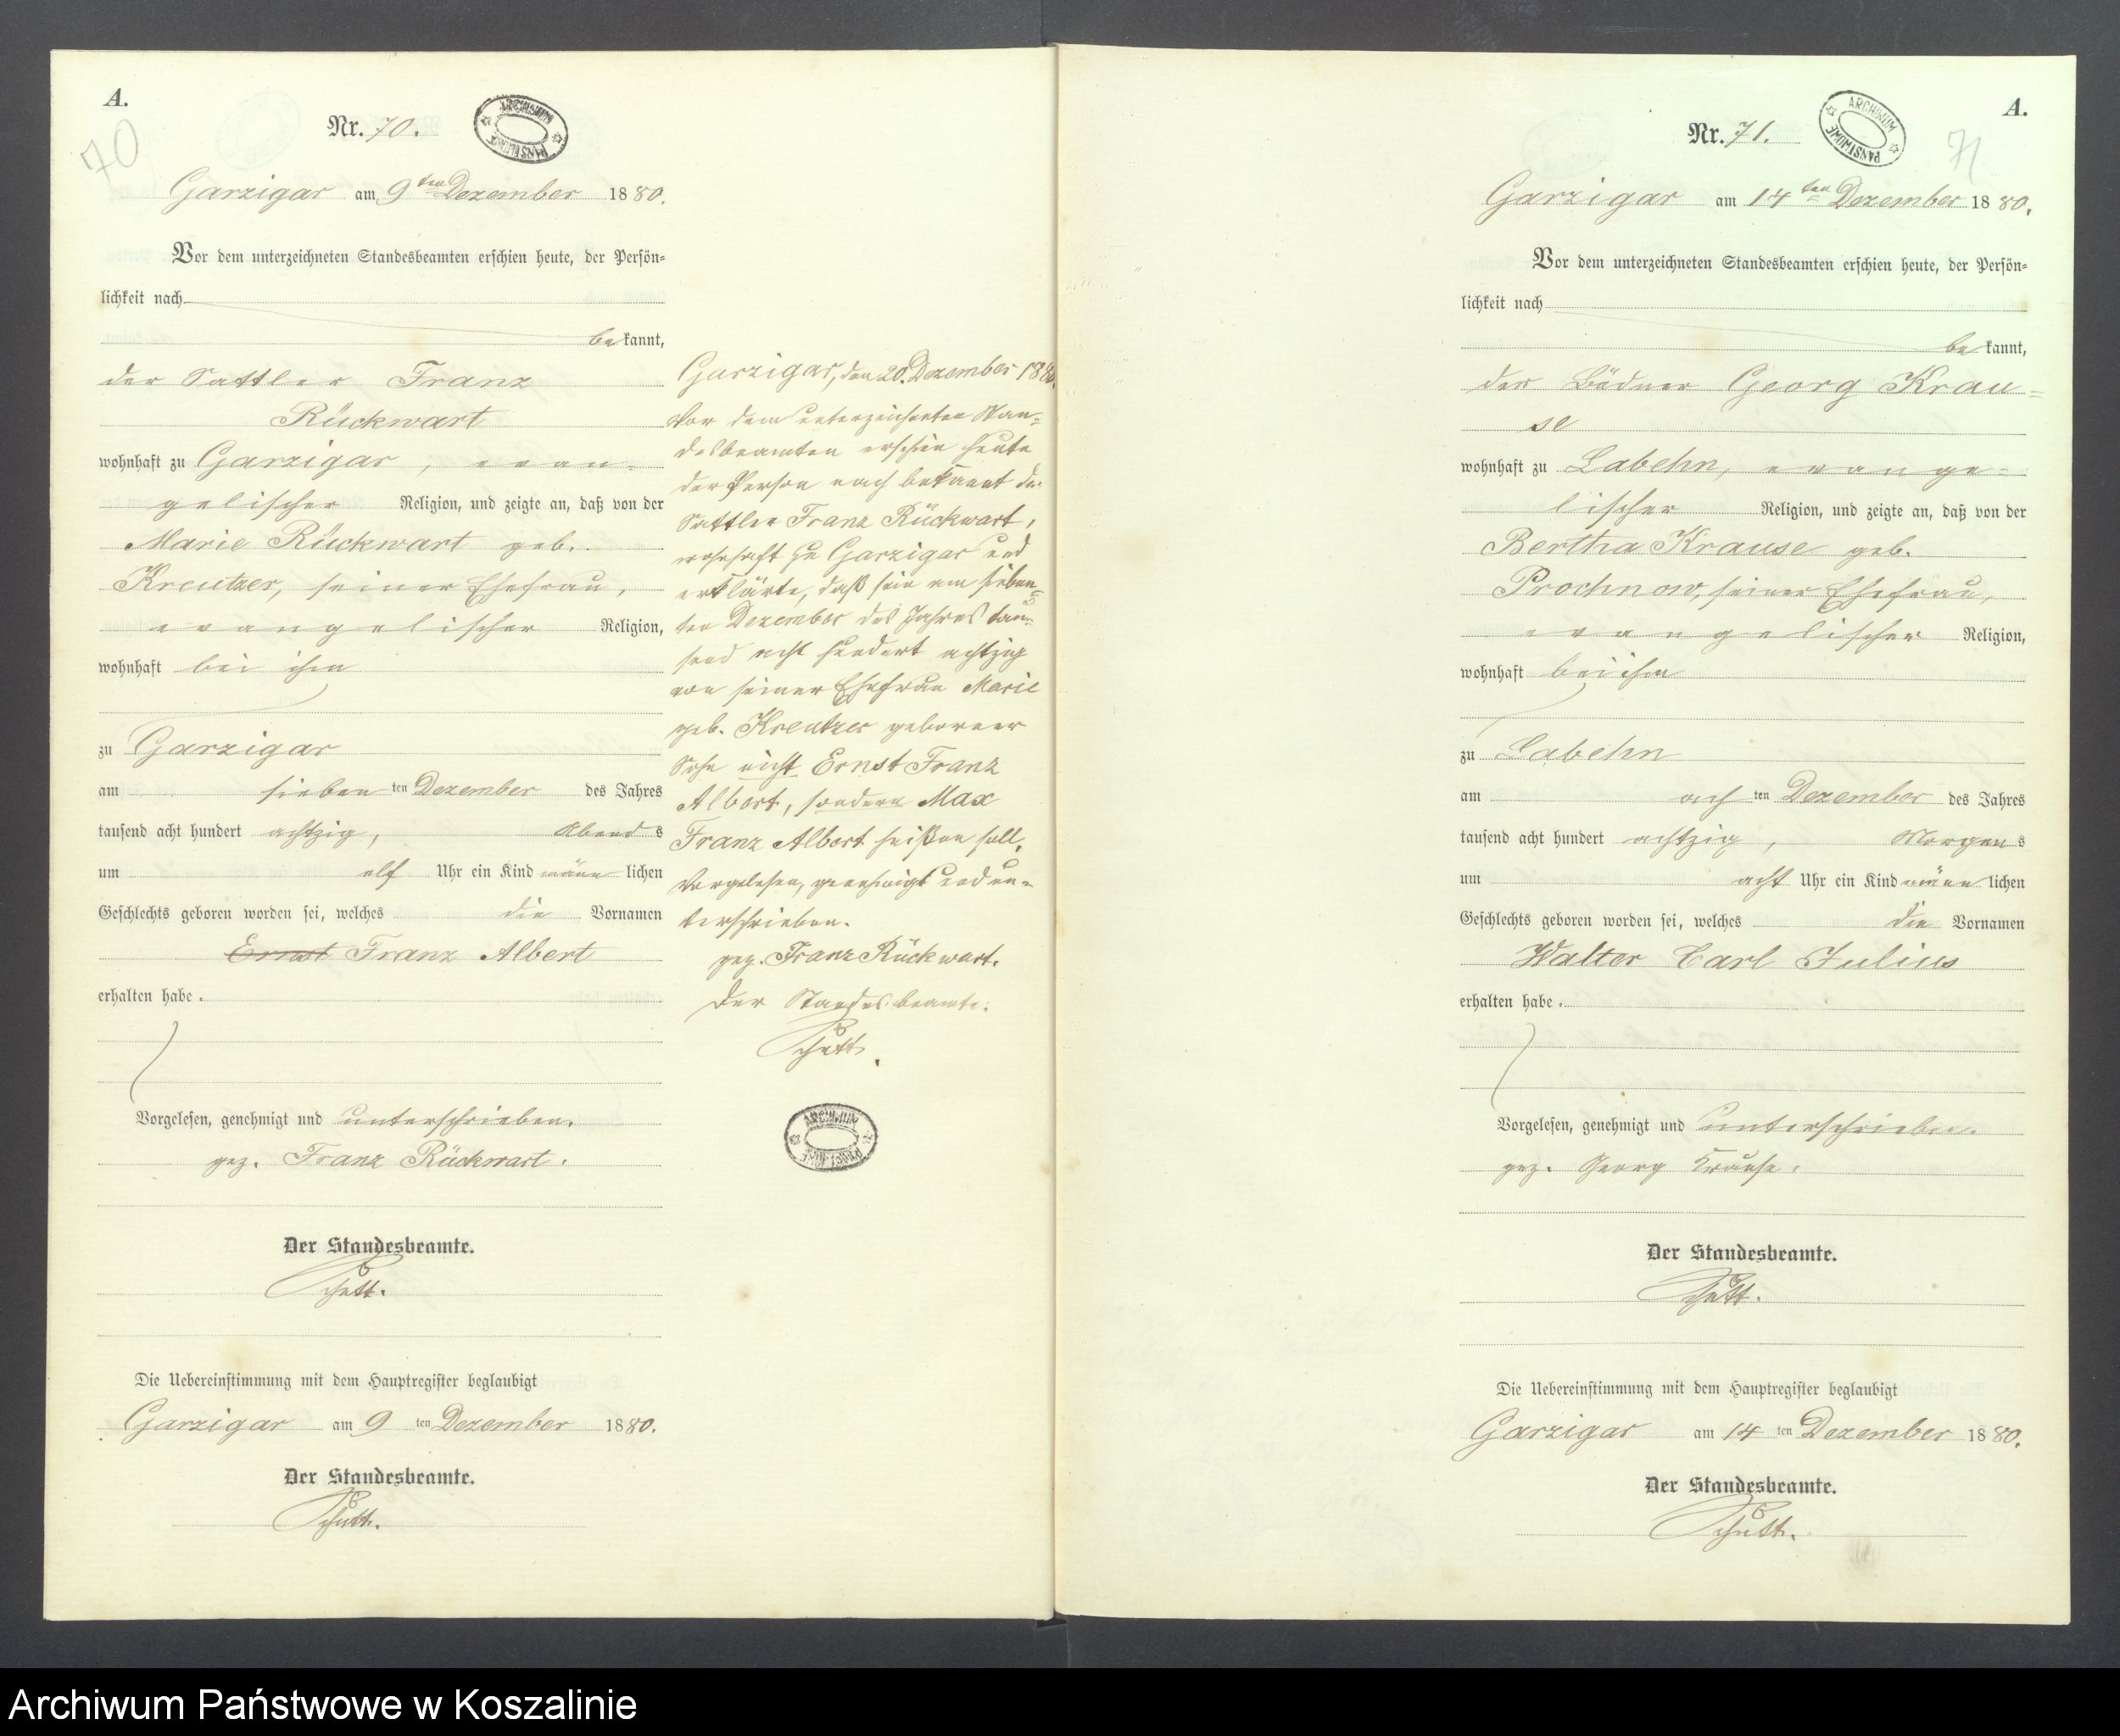 A.
70
Nr. 70.
ARCHIWUM PAŃSTWOWE
Garzigar am 9ten Dezember 1880.
Vor dem unterzeichneten Standesbeamten erschien heute, der Persön=
lichkeit nach
bekannt,
der Sattler Franz
Rückwart
wohnhaft zu Garzigar, evan=
gelischer Religion, und zeigte an, daß von der
Marie Rückwart geb.
Kreutzer, seiner Ehefrau,
evangelischer Religion,
wohnhaft bei ihm
zu Garzigar
am sieben ten Dezember des Jahres
tausend acht hundert achtzig, Abends
um elf Uhr ein Kind männlichen
Geschlechts geboren worden sei, welches die Vornamen
Ernst Franz Albert
erhalten habe.
Vorgelesen, genehmigt und unterschrieben.
gez. Franz Rückwart.
Der Standesbeamte.
Schütt.
Die Uebereinstimmung mit dem Hauptregister beglaubigt
Garzigar am 9 ten Dezember 1880.
Der Standesbeamte.
Schütt.
Garzigar, den 20. Dezember 1880.
Vor dem unterzeichneten Stan=
desbeamten erschien heute
der Person nach bekannt der
Sattler Franz Rückwart,
wohnhaft zu Garzigar und
erklärte, daß sein am sieben=
ten Dezember des Jahres tau=
send acht hundert achtzig
von seiner Ehefrau Marie
geb. Kreutzer geborener
Sohn nicht Ernst Franz
Albert, sondern Max
Franz Albert heißen soll.
Vorgelesen, genehmigt und un=
terschrieben.
gez. Franz Rückwart.
Der Standesbeamte.
Schütt.
ARCHIWUM PAŃSTWOWE
A.
71
Nr. 71.
ARCHIWUM PAŃSTWOWE
Garzigar am 14ten Dezember 1880.
Vor dem unterzeichneten Standesbeamten erschien heute, der Persön=
lichkeit nach
bekannt,
der Büdner Georg Krau=
se
wohnhaft zu Labehn, evange=
lischer Religion, und zeigte an, daß von der
Bertha Krause geb.
Prochnow, seiner Ehefrau,
evangelischer Religion,
wohnhaft bei ihm
zu Labehn
am ach ten Dezember des Jahres
tausend acht hundert achtzig, Morgens
um acht Uhr ein Kind männlichen
Geschlechts geboren worden sei, welches die Vornamen
Walter Carl Julius
erhalten habe.
Vorgelesen, genehmigt und unterschrieben.
gez. Georg Krause.
Der Standesbeamte.
Schütt.
Die Uebereinstimmung mit dem Hauptregister beglaubigt
Garzigar am 14 ten Dezember 1880.
Der Standesbeamte.
Schütt.
Archiwum Państwowe w Koszalinie